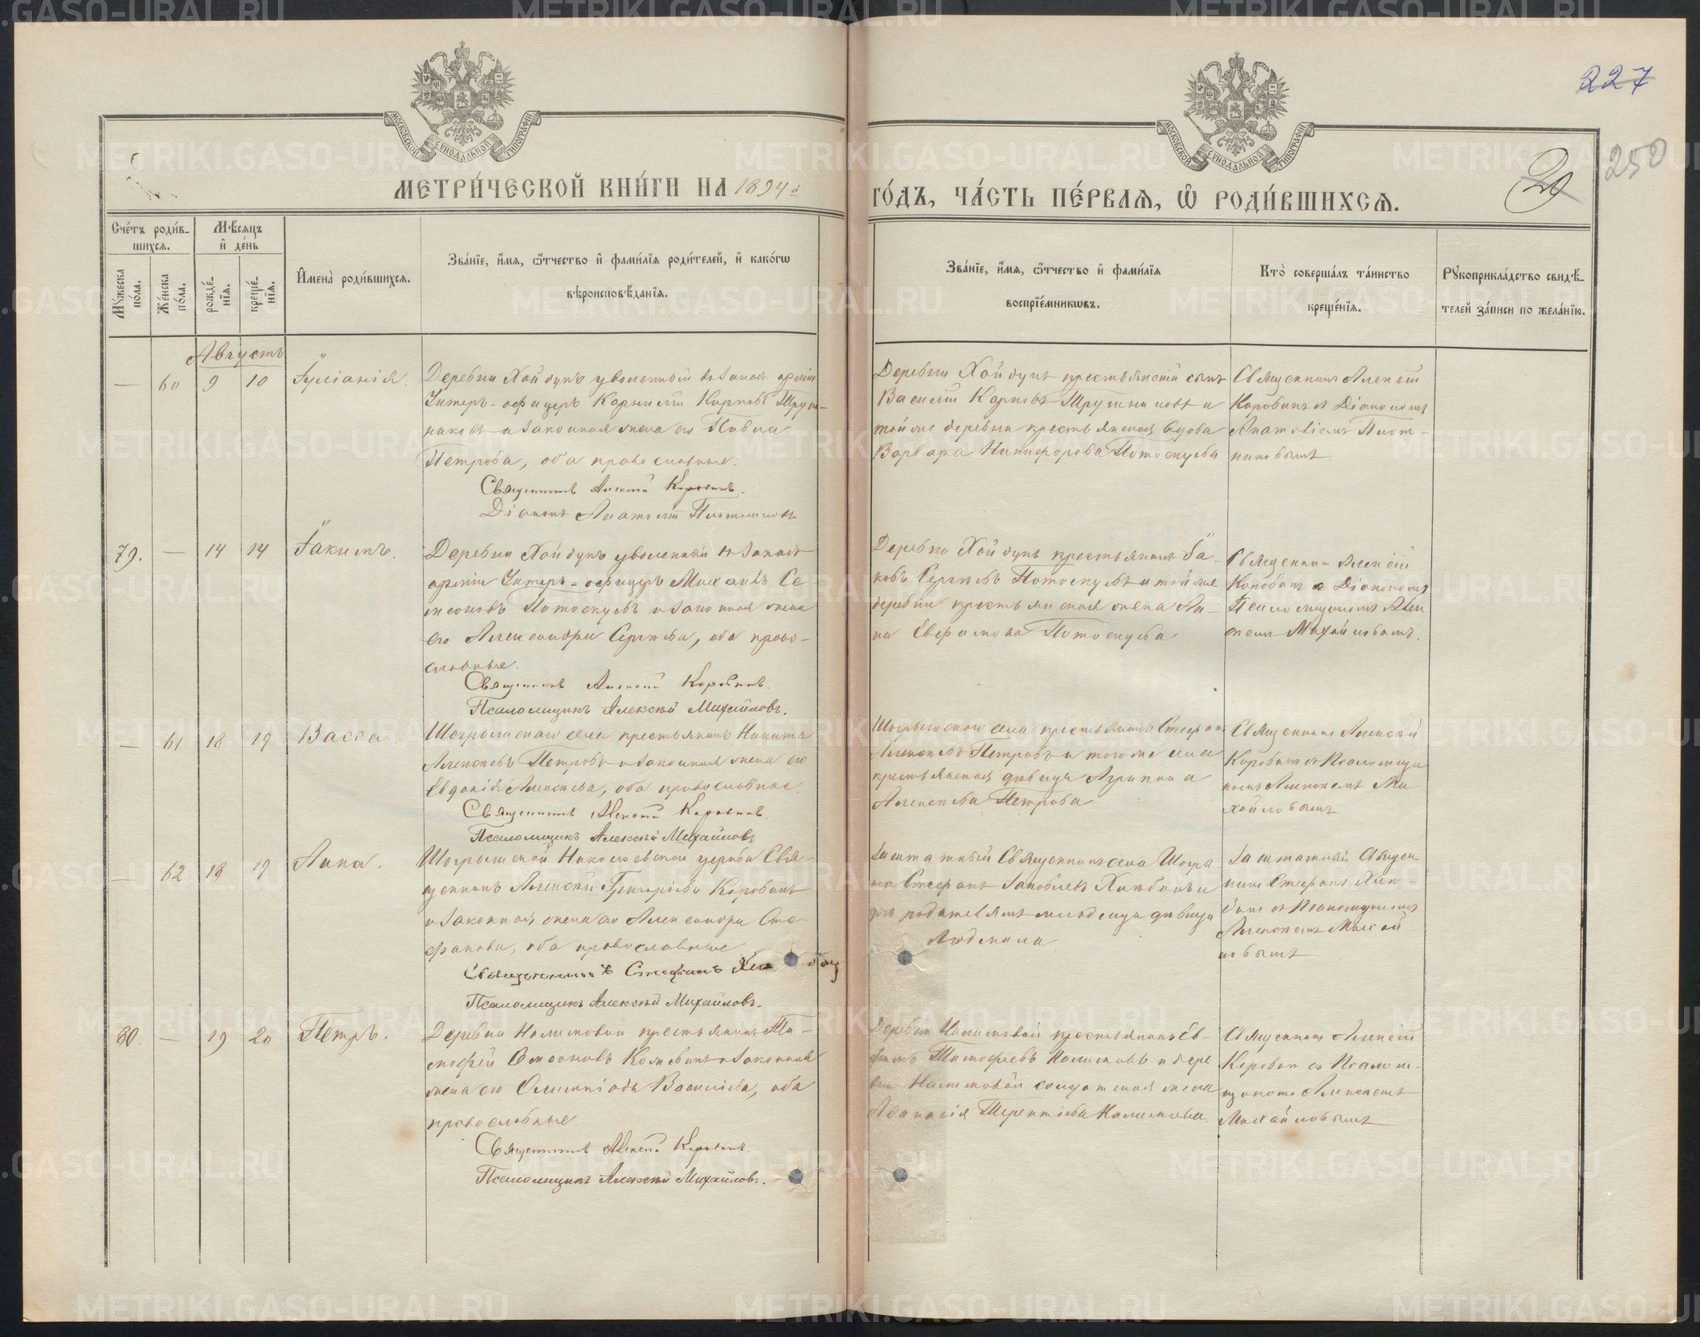 227
250
20
МОСКОВСКОЙ СѴНОДАЛЬНОЙ ТИПОГРАФІИ
МОСКОВСКОЙ СѴНОДАЛЬНОЙ ТИПОГРАФІИ
МЕТРИ́ЧЕСКОЙ КНИ́ГИ НА 1894й
ГО́ДЪ, ЧА́СТЬ ПЕ́РВАѦ, Ѡ҆ РОДИ́ВШИХСѦ.
Сче́тъ роди́в-
шихсѧ.
Мꙋ́жеска по́ла.
Же́нска по́ла.
Мѣ́сѧцъ
и҆ де́нь
рожде́-
нїѧ.
креще́-
нїѧ.
И҆мена̀ роди́вшихсѧ.
Зва́нїе, и҆́мѧ, ѻ҆́тчество и҆ фами́лїѧ роди́телей, и҆ како́гѡ
вѣроисповѣ́данїѧ.
Зва́нїе, и҆́мѧ, ѻ҆́тчество и҆ фами́лїѧ
воспрїе́мникѡвъ.
Кто̀ соверша́лъ та́инство
креще́нїѧ.
Рꙋкоприкла́дство свидѣ́-
телей за́писи по жела́нїю.
Августъ
— 60 9 10 Іуліанія
Деревни Хайдукъ уволенный въ запасъ арміи
Унтеръ-офицеръ Корнилій Карповъ Трун-
никовъ и законная жена его Павла
Петрова, оба православные.
Священникъ Алексій Коровинъ.
Діаконъ Анатолій Плотниковъ
Деревни Хайдукъ крестьянскій сынъ
Василій Карповъ и
той же деревни крестьянская вдова
Варвара Никифорова Потоскуева
Священникъ Алексій
Коровинъ съ Діакономъ
Анатоліемъ Плот-
никовымъ
79. — 14 14 Іакимъ.
Деревни Хайдукъ уволенный въ запасъ
арміи Унтеръ-офицеръ Михаилъ Се-
меоновъ Потоскуевъ и законная жена
его Александра Сергѣева, оба право-
славные.
Священникъ Алексій Коровинъ.
Псаломщикъ Алексѣй Михайловъ.
Деревни Хайдукъ крестьянинъ Іа-
ковъ Сергѣевъ Потоскуевъ и той же
деревни крестьянская жена Ан-
на Евфимова Потоскуева
Священникъ Алексій
Коровинъ съ
Псаломщикомъ Алек-
сѣемъ Михайловымъ.
— 61 18 19 Васса
Шогрышскаго села крестьянинъ Никита
Алексѣевъ Петровъ и законная жена его
Евдокія Алексѣева, оба православные.
Священникъ Алексій Коровинъ.
Псаломщикъ Алексѣй Михайловъ
Шогрышскаго села крестьянинъ Стефанъ
Алексѣевъ Петровъ и того же села
крестьянская дѣвица Агрипина
Алексѣева Петрова
Священникъ Алексій
Коровинъ съ Псаломщи-
комъ Алексѣемъ Ми-
хайловымъ
— 62 18 19 Анна.
Шогрышской Николаевской церкви Свя-
щенникъ Алексій Григорьевъ Коровинъ
и законная жена его Александра Сте-
фанова, оба православные
Священникъ Стефанъ
Псаломщикъ Алексѣй Михайловъ.
Заштатный Священникъ села
Стефанъ Іаковлевъ и
дѣвица
Людмила
Заштатный Священ-
никъ Стефанъ
съ Псаломщикомъ
Алексѣемъ Михай-
ловымъ
80. — 19 20 Петръ.
Деревни Налимовой крестьянинъ Ти-
мофей Семеоновъ и законная
жена его Олимпіада Васильева, оба
православные
Священникъ Алексій Коровинъ.
Псаломщикъ Алексѣй Михайловъ.
Деревни Налимовой крестьянинъ Ев-
Тимофеевъ Налимовъ и дерев-
ни Налимовой солдатская жена
Аѳанасія Терентьева Налимова
Священникъ Алексій
Коровинъ съ Псалом-
щикомъ Алексѣемъ
Михайловымъ
METRIKI.GASO-URAL.RU